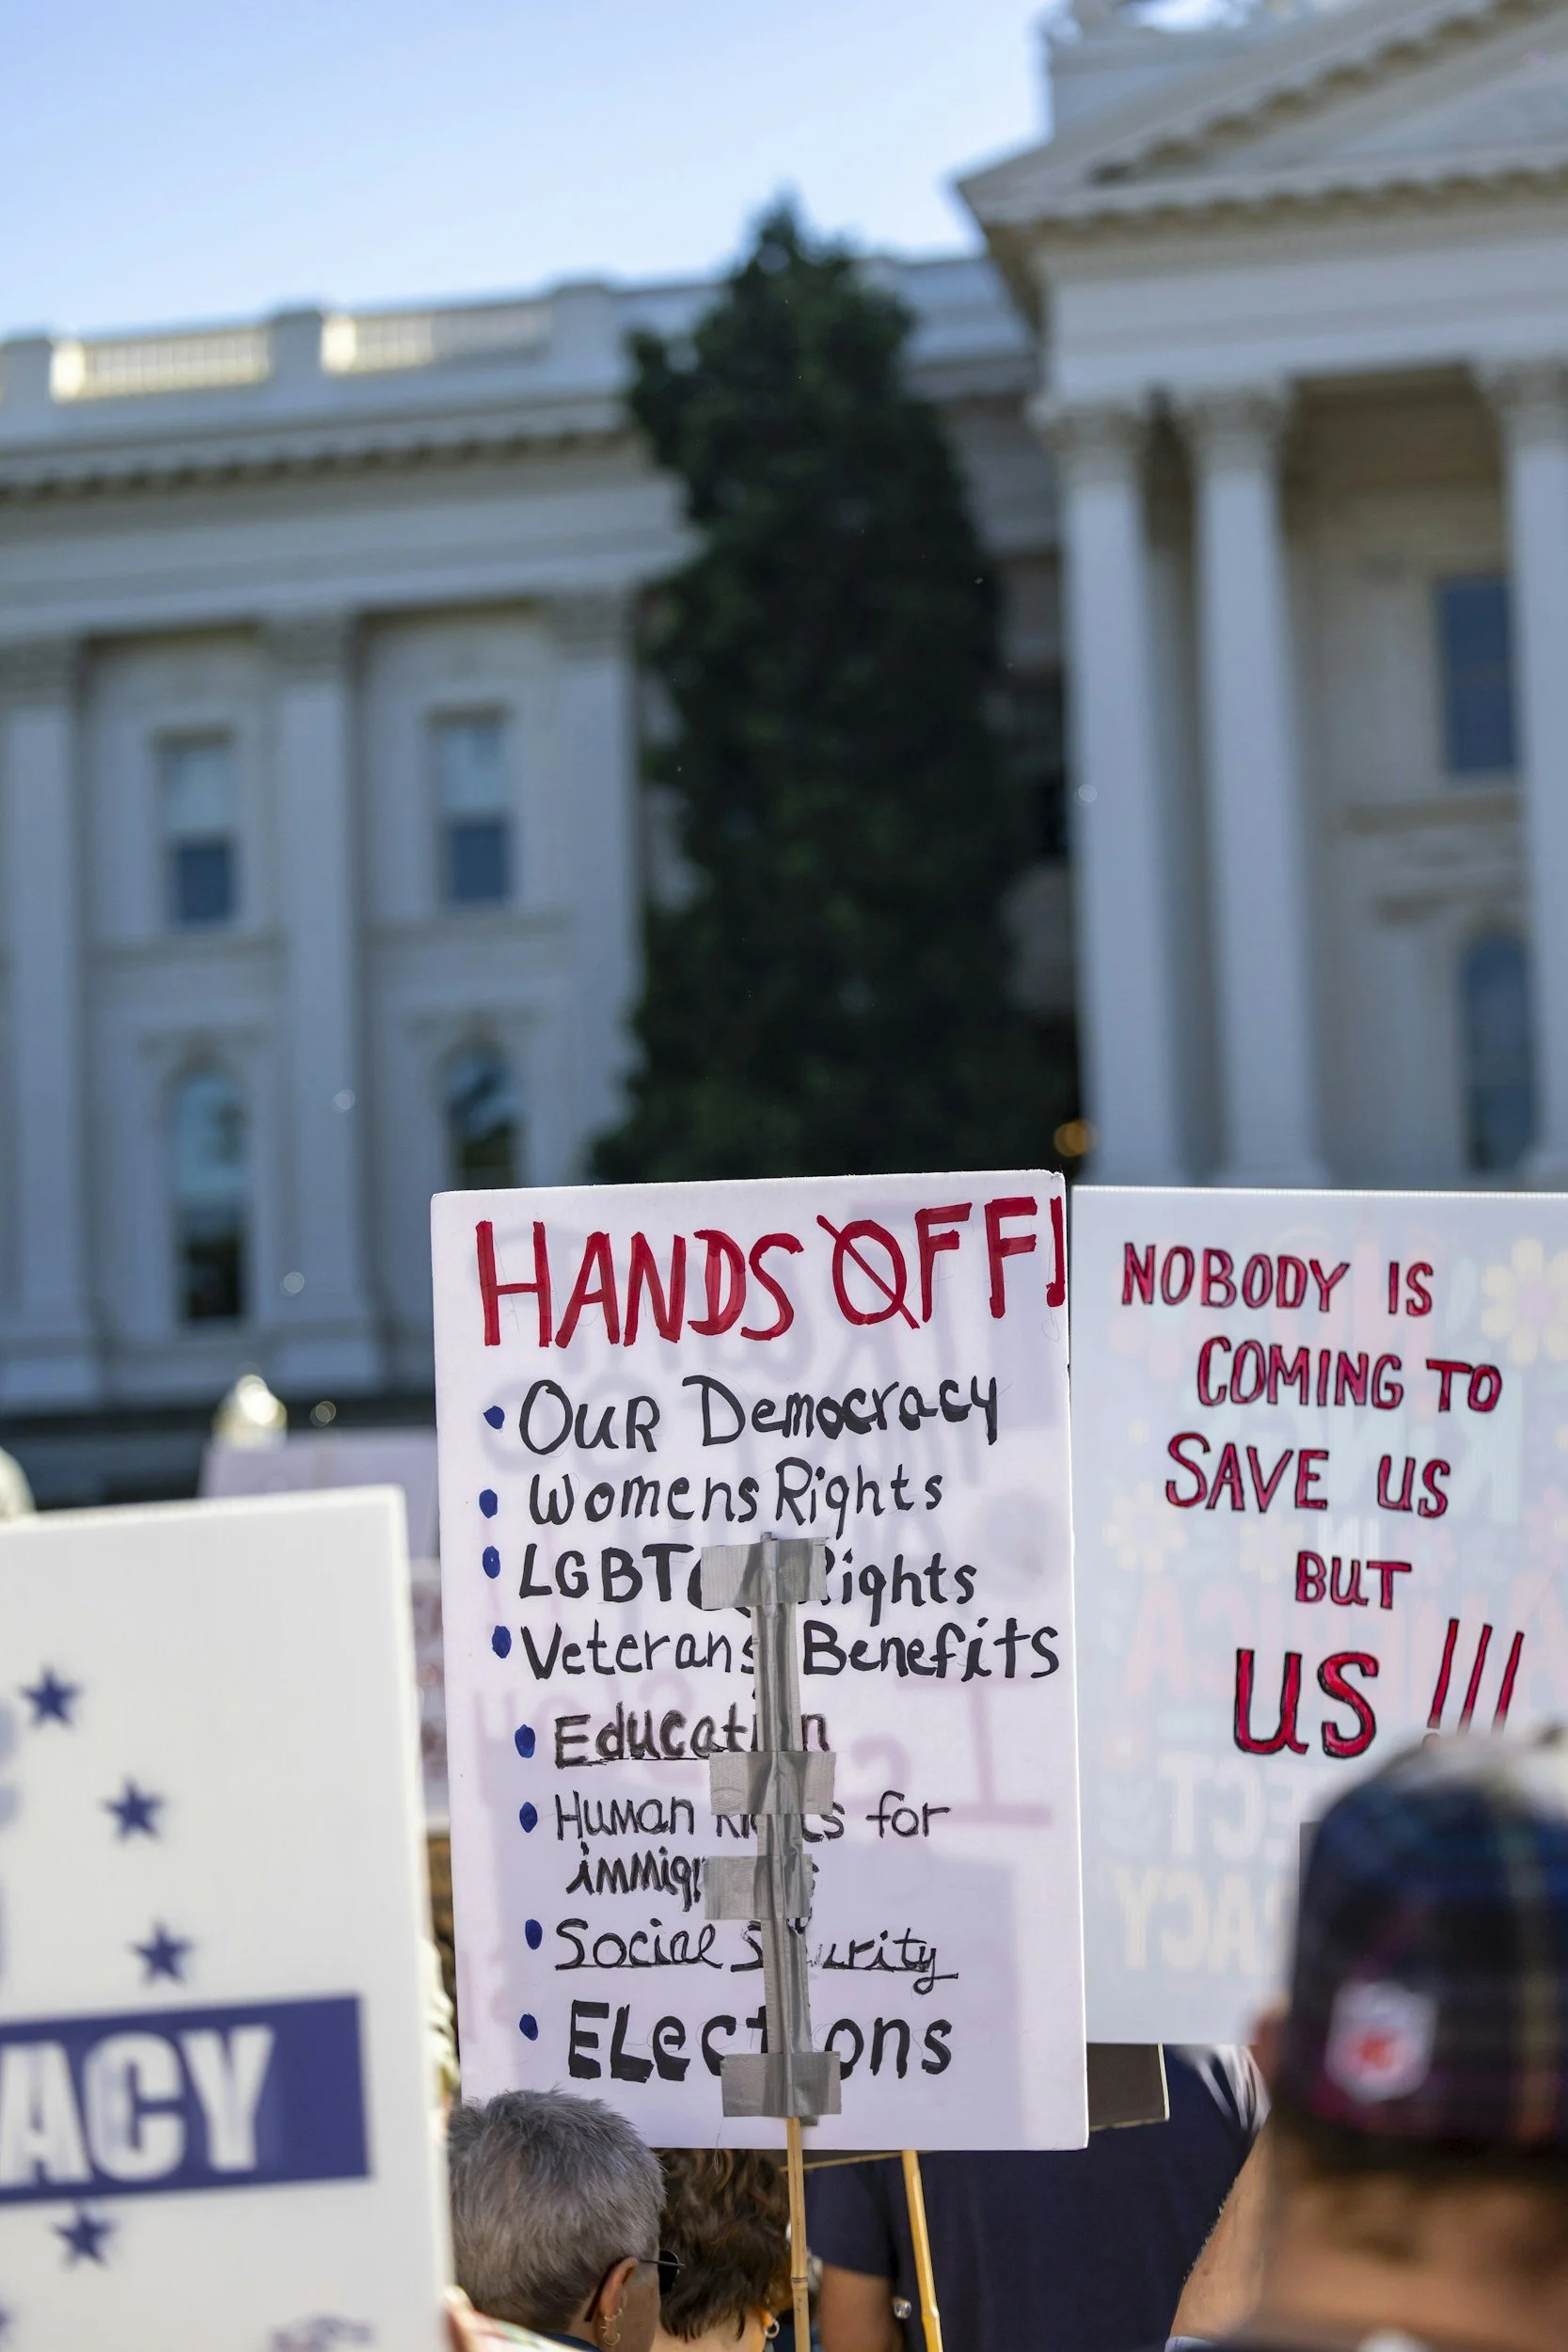 HANDS OFF!
• OUR Democracy
• Womens Rights
• LGBTQ Rights
• Veterans Benefits
• Education
• Human Rights for
• Social Security
• ELections
NOBODY IS
COMING TO
SAVE US
BUT
US !!!
ACY